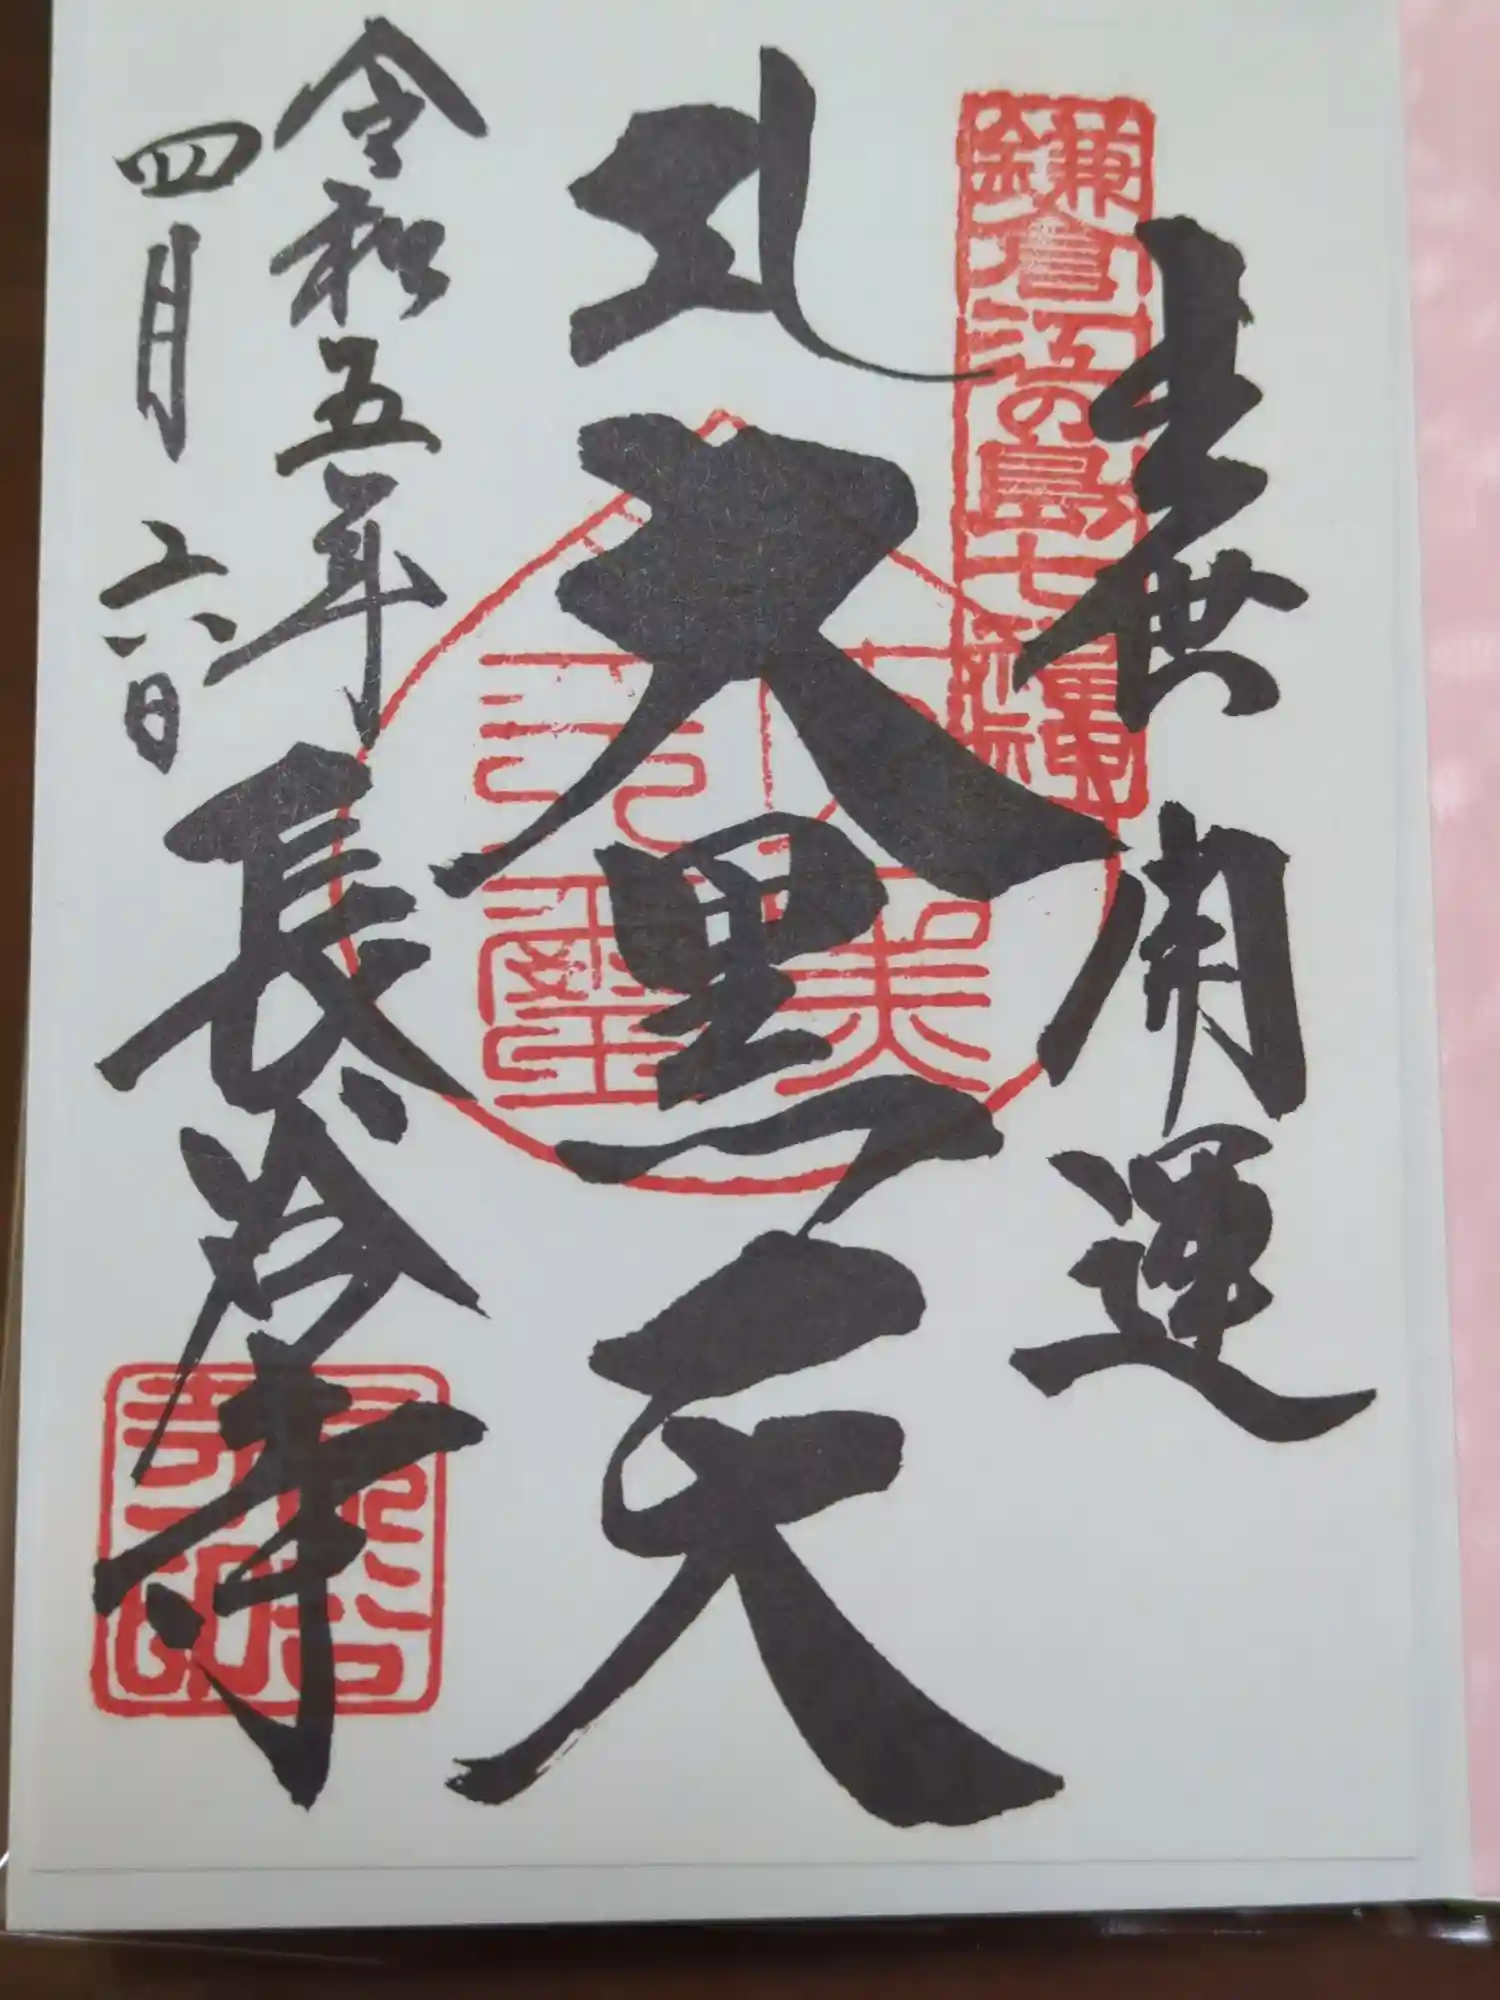 鎌倉江の島七福神
出世開運
大黒天
令和五年
四月六日
長谷寺
長谷寺印